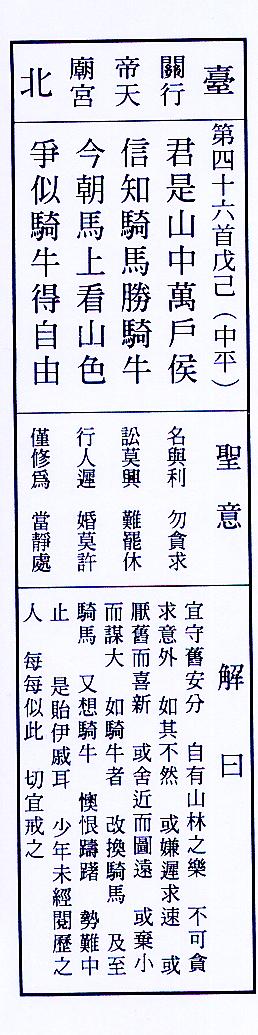 臺北
行天宮
關帝廟
第四十六首戊己（中平）
君是山中萬戶侯
信知騎馬勝騎牛
今朝馬上看山色
爭似騎牛得自由
聖意
名與利　勿貪求
訟莫興　難罷休
行人遲　婚莫許
僅修為　當靜處
解曰
宜守舊安分　自有山林之樂　不可貪
求意外　如其不然　或嫌遲求速　或
厭舊而喜新　或舍近而圖遠　或棄小
而謀大　如騎牛者　改換騎馬　及至
騎馬　又想騎牛　懊恨躊躇　勢難中
止　是貽伊戚耳　少年未經閱歷之
人　每每似此　切宜戒之